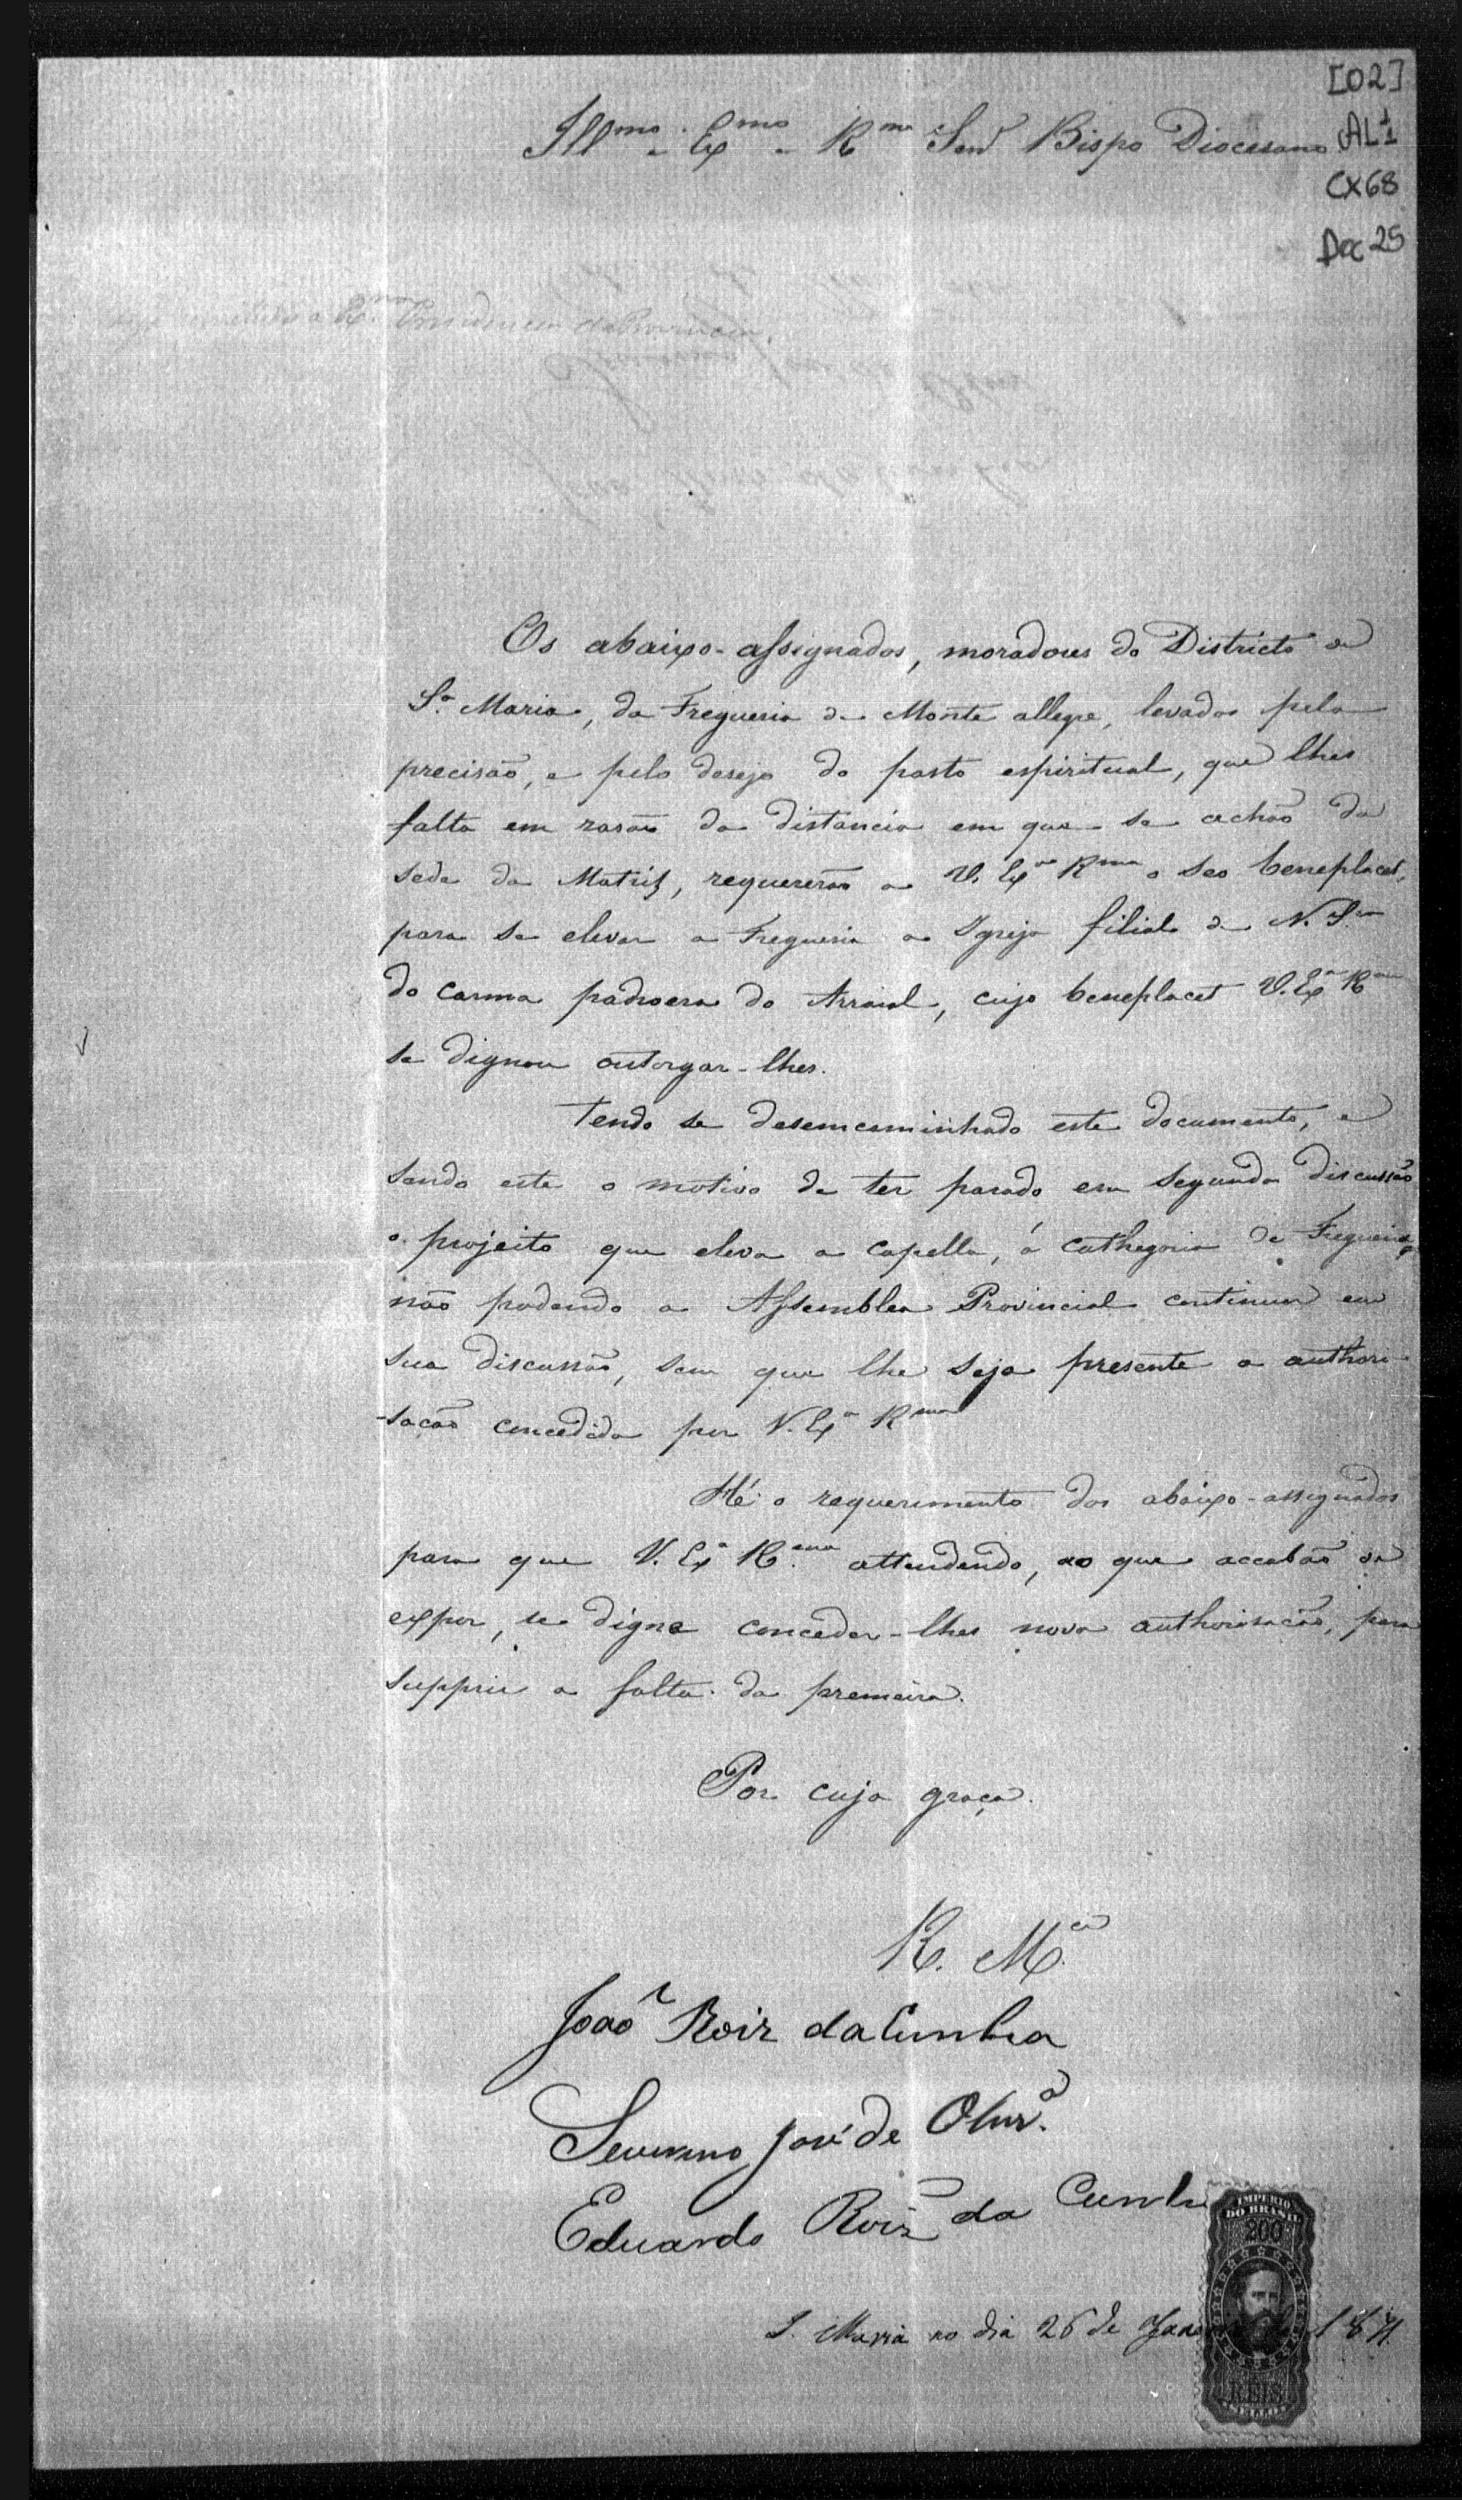 [02]
AL1
CX68
Doc 25
Illmo. e Exmo. e Rmo Senr Bispo Diocesano
a Exma Presidencia da Provincia.
Os abaixo-assignados, moradores do Districto de
Sta Maria, da Freguesia de Monte allegre, levados pela
precisão, e pelo desejo do pasto espiritual, que lhes
falta em rasão da distancia em que se achão da
sede da Matriz, requererão a V. Exa Rma o seo beneplacet,
para se elevar a Freguesia a Igreja filial de N. Sra
do Carmo padroera do Arraial, cujo beneplacet V. Exa Rma
se dignou outorgar-lhes.
Tendo se desemcaminhado este documento, e
sendo este o motivo de ter parado em segunda discussão
o projeito que eleva a capella, á cathegoria de Freguesia,
não podendo a Assemblea Provincial continuar em
sua discussão, sem que lhe seja presente a authori-
-sação concedida por V. Exa Rma
Hé o requerimento dos abaixo-assignados
para que V. Exa Rema attendendo, ao que accabão de
expor, se digne conceder-lhes nova authorisacão, para
supprir a falta da premeira.
Por cuja graça.
R. Mce
João Roiz da Cunha
Severino José de Olivra.
Eduardo Roiz da Cunh
IMPERIO
DO BRASIL
200
S. Maria no dia 26 de Jan 187
REIS
SELLO